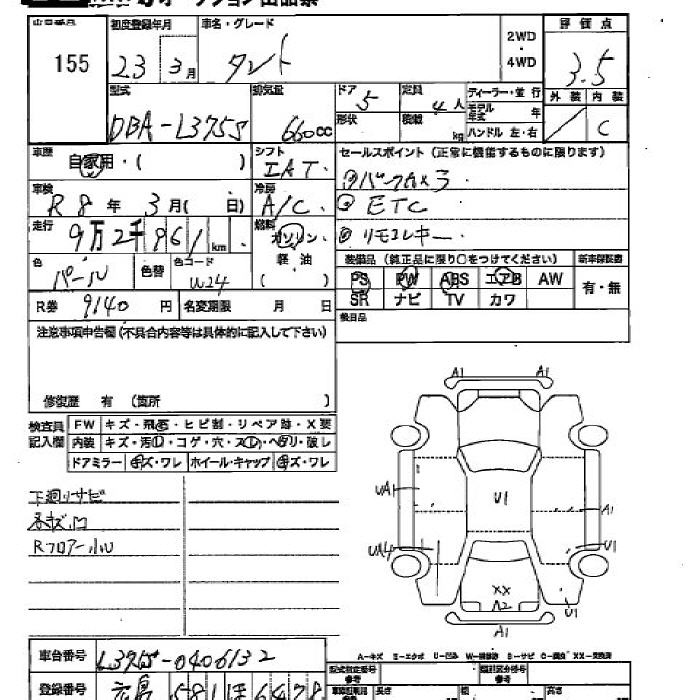 オークション出品票
出品番号 初度登録年月 車名・グレード 2WD・4WD 評価点
155 23 3月 タント 3.5
型式 排気量 ドア 定員 ディーラー・並行 外装 内装
DBA-L375S 660cc 5 4人 モデル年式 年 C
形状 積載 kg ハンドル 左・右
車歴 自家用・( ) シフト IAT. セールスポイント(正常に機能するものに限ります)
車検 R8年 3月( 日) 冷房 A/C. ETC
走行 9万2千961km 燃料 ガソリン・軽油( ) リモコンキー
色 パール 色替 色コード W24
装備品(正規品に限り○をつけてください) 新車保証書
PS PW ABS エアB AW 有・無
SR ナビ TV カワ
R券 9140円 名変期限 月 日
後日品
注意事項申告欄(不具合内容等は具体的に記入して下さい)
修復歴 有(箇所 )
検査員記入欄
FW キズ・飛石・ヒビ割・リペア跡・X要
内装 キズ・汚・コゲ・穴・スレ・ヘタリ・破レ
ドアミラー キズ・ワレ ホイール・キャップ キズ・ワレ
下廻りサビ
Rフロアー小U
A1
A1
UA1
U1
A1
UA4
U1
XX
A2
U1
A1
A-キズ E-エクボ U-凹み W-補修跡 S-サビ C-腐食 XX-交換済
車台番号 L375S-0406132
型式指定番号 参考 類別区分番号 参考
登録番号 広島 581 ほ 6478
長さ 幅 高さ